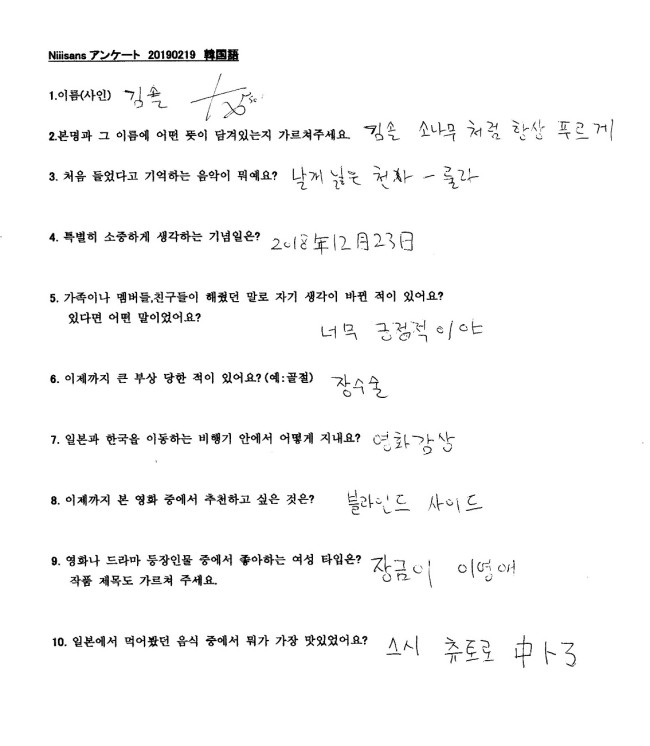 Niiisans アンケート 20190219 韓国語
1.이름(사인) 김솔
2.본명과 그 이름에 어떤 뜻이 담겨있는지 가르쳐주세요. 김솔 소나무 처럼 항상 푸르게
3. 처음 들었다고 기억하는 음악이 뭐예요? 날개 잃은 천사 - 룰라
4. 특별히 소중하게 생각하는 기념일은? 2018年12月23日
5. 가족이나 멤버들,친구들이 해줬던 말로 자기 생각이 바뀐 적이 있어요?
있다면 어떤 말이었어요?
너무 긍정적이야
6. 이제까지 큰 부상 당한 적이 있어요?(예:골절) 장수술
7. 일본과 한국을 이동하는 비행기 안에서 어떻게 지내요? 영화감상
8. 이제까지 본 영화 중에서 추천하고 싶은 것은? 블라인드 사이드
9. 영화나 드라마 등장인물 중에서 좋아하는 여성 타입은? 장금이 이영애
작품 제목도 가르쳐 주세요.
10. 일본에서 먹어봤던 음식 중에서 뭐가 가장 맛있었어요? 스시 츄토로 中トロ